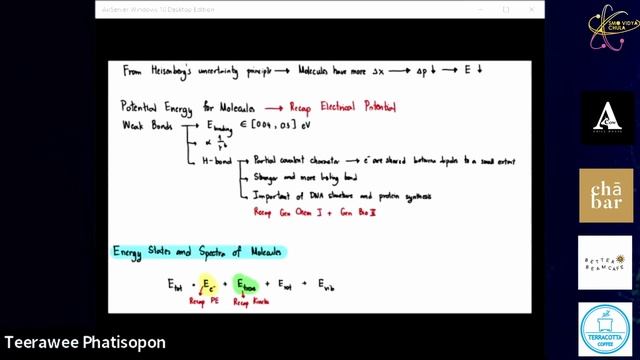 AirServer Windows 10 Desktop Edition
From Heisenberg's uncertainty principle → Molecules have more Δx → Δp ↓ → E ↓
Potential Energy for Molecules → Recap Electrical Potential
Weak Bonds → E binding ∈ [0.04, 0.3] eV
∝ 1/r⁶
H-bond → Partial covalent character → e⁻ are shared between dipoles to a small extent
Stronger and more lasting bond
Important of DNA structure and protein synthesis
Recap Gen Chem I + Gen Bio II
Energy States and Spectra of Molecules
E tot = E e⁻ + E trans + E rot + E vib
Recap PE
Recap Kinetic
SMO VIDYA
CHULA
A
chā
bar
BETTER
BEAM CAFE
TERRACOTTA
COFFEE
Teerawee Phatisopon